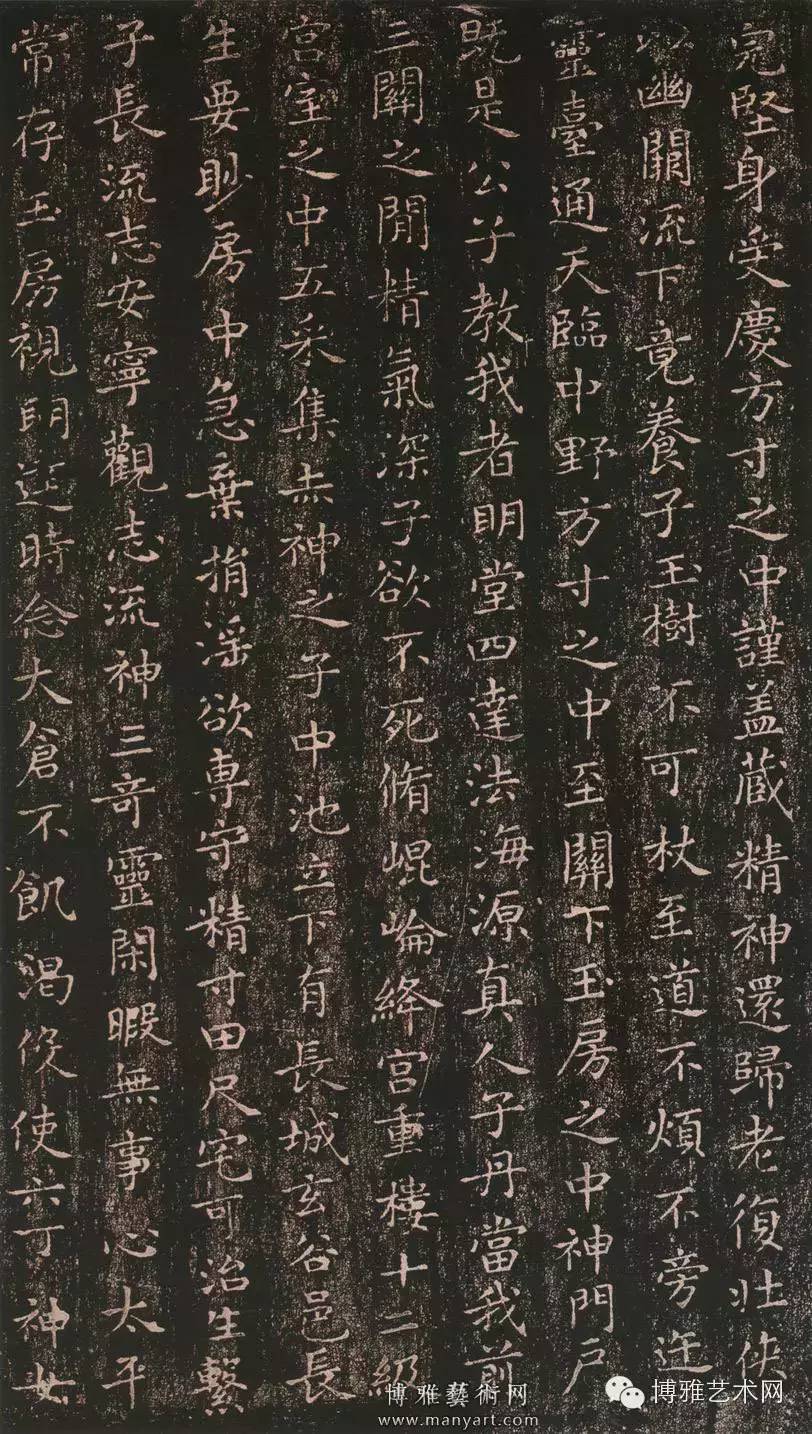 完堅身受慶方寸之中謹盖藏精神還歸老復壯俠
以幽闕流下竟養子玉樹不可杖至道不煩不旁迕
靈臺通天臨中野方寸之中至關下玉房之中神門戶
既是公子教我者眀堂四達法海源真人子丹當我前
三關之閒精氣深子欲不死脩崐崘絳宮重樓十二級
宮室之中五采集赤神之子中池立下有長城玄谷邑長
生要眇房中急棄捐淫欲專守精寸田尺宅可治生繫
子長流志安寧觀志流神三奇靈閑暇無事心太平
常存玉房視眀達時念大倉不飢渴役使六丁神女
博雅藝術网
www.manyart.com
博雅艺术网